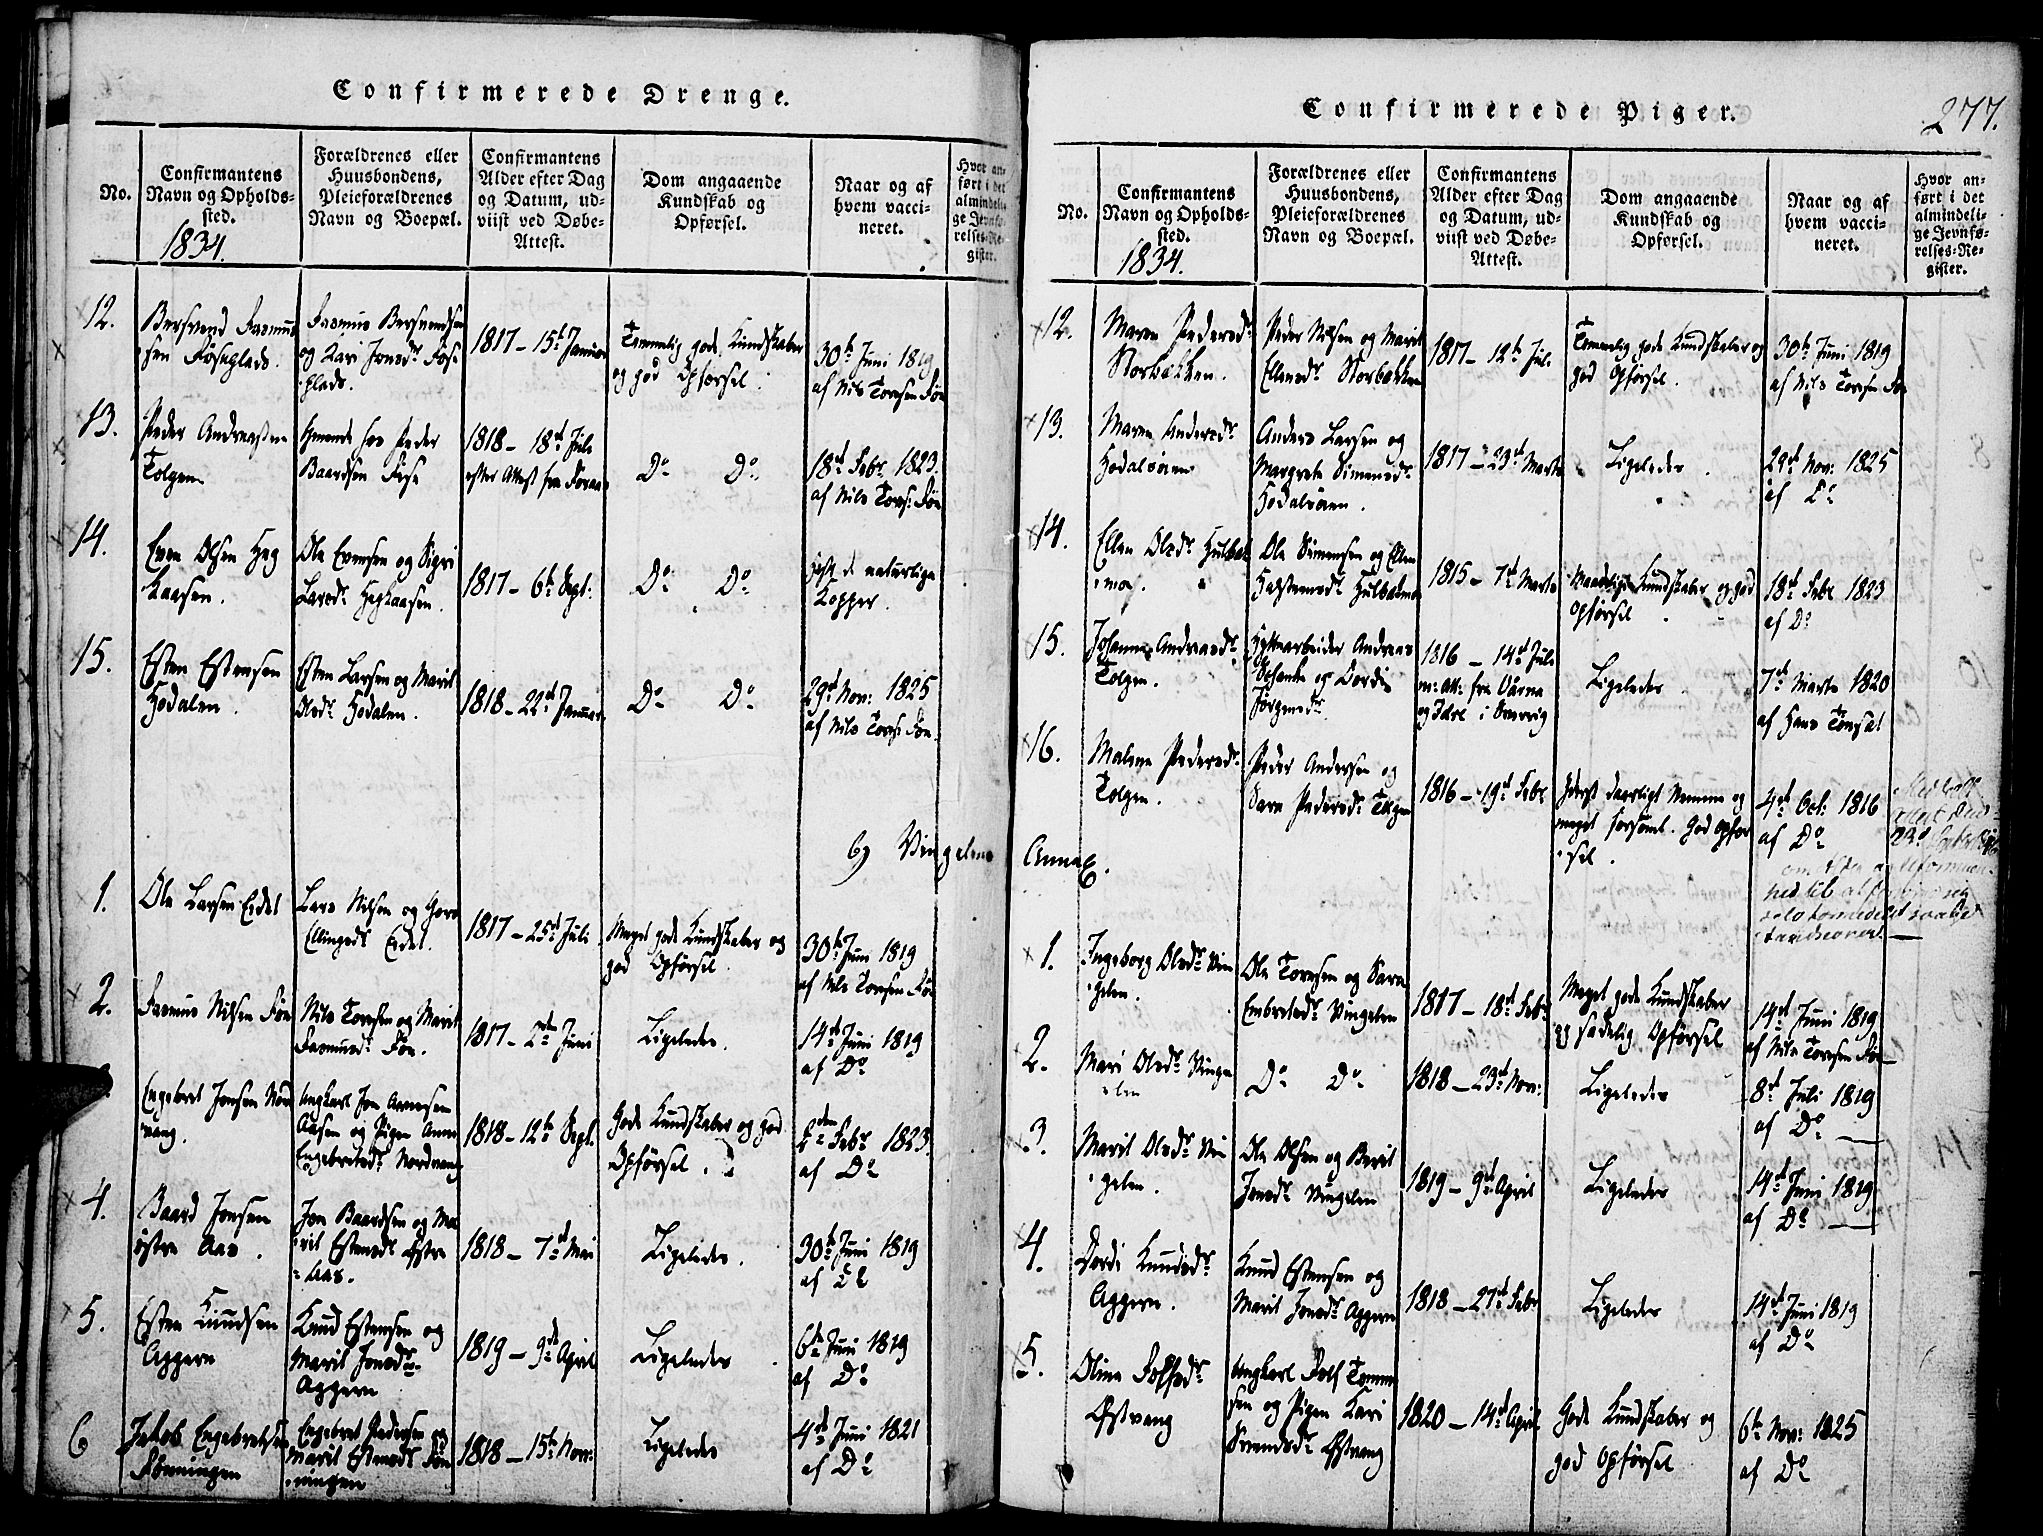 Confirmerede Drenge.
No.
Confirmantens
Navn og Opholds-
sted.
1834.
Forældrenes eller
Huusbondens,
Pleieforældrenes
Navn og Boepæl.
Confirmantens
Alder efter Dag
og Datum, ud-
viist ved Døbe-
Attest.
Dom angaaende
Kundskab og
Opførsel.
Naar og af
hvem vacci-
neret.
Hvor an-
ført i det
almindeli-
ge Jevnfø-
relses-Re-
gister.
12.
Bersvend Rasmus
sen
Rasmus Bersvendsen
og Kari Jonsdr
1817 - 15de Januar
Temmelig gode Kundskaber
og god Opførsel.
30te Juni 1819
af Nils Toresen Røe
13.
Peder Andreassen
Tolgen
hos Peder
Baardsen
1818 - 18de Juli
efter Attest fra
Do Do
18de Febr. 1823.
af Nils Tores: Røe
14.
Even Olsen Heg
kaasen.
Ole Evensen og Sigri
Larsdr Hegkaasen.
1817 - 6te Sept:
Do Do
naturlige
Kopper.
15.
Esten Estensen
Hodalen.
Esten Larsen og Marit
Olsdr Hodalen.
1818 - 22de Januar
Do Do
29de Nov: 1825
af Nils Tores: Røe.
b) Vingelens
1.
Ole Larsen Eidet
Lars Nilsen og Goro
Ellingsdr Eidet.
1817 - 25de Juli
Meget gode Kundskaber og
god Opførsel.
30te Juni 1819
af Nils Toresen Røe
2.
Rasmus Nilsen Røe
Nils Toresen og Marit
Rasmusdr Røe.
1817 - 2den Juni
Ligeledes.
14de Juni 1819
af Do
Engebret Jonsen Nord
vang.
Ungkarl Jon Arnesen
Aasen og Pigen Anne
Engebretsdr Nordvang
1818 - 12te Sept.
Gode Kundskaber og god
Opførsel.
2den Febr 1823.
af Do
4.
Baard Jonsen
østre Aas.
Jon Baardsen og Ma
rit Estensdr Østre
Aas.
1818 - 7de Mai
Ligeledes.
30te Juni 1819
af Do
5.
Esten Knudsen
Aggern
Knud Estensen og
Marit Jonsdr
Aggern
1819 - 9de April
Ligeledes
6te Juni 1819
af Do
6
Jakob Engebretsen
Rønningen
Engebret Pedersen og
Marit Estensdr Røn
ningen
1818 - 15te Nov:
Ligeledes
4de Juni 1821
af Do
Confirmerede Piger.
277.
No.
Confirmantens
Navn og Opholds-
sted.
1834.
Forældrenes eller
Huusbondens,
Pleieforældrenes
Navn og Boepæl.
Confirmantens
Alder efter Dag
og Datum, ud-
viist ved Døbe-
Attest.
Dom angaaende
Kundskab og
Opførsel.
Naar og af
hvem vacci-
neret.
Hvor an-
ført i det
almindeli-
ge Jevnfø-
relses-Re-
gister.
12.
Maren Pedersdr
Storbækken.
Peder Nilsen og Marit
Ellensdr Storbækken
1817 - 12te Juli
Temmelig gode Kundskaber og
god Opførsel.
30te Juni 1819
af Nils Toresen Røe
13.
Maren Andersdr
Hodalsøien
Anders Larsen og
Margrete Simensdr
Hodalsøien.
1817 - 23de Marts
Ligeledes.
29de Nov: 1825
af Do
14.
Ellen Olsdr Hulbæk
moe.
Ole Simensen og Ellen
Halstensdr Hulbækmoe
1815 - 7de Marts
Maadelige Kundskaber og god
Opførsel
18de Febr 1823
af Do
15.
Johanne Andreasdr
Tolgen.
Hyttearbeider Andreas
og Dordi
Jørgensdr
1816 - 14de Juli
m: Att: fra Särna
og Idre i Sverrig
Ligeledes.
7de Marts 1820
af Hans Tønset
16.
Malene Pedersdr
Tolgen.
Peder Andersen og
Sara Pedersdr Tolgen
1816 - 19de Febr
Yderst daarligt Nemme og
meget forsømt. God Opfør
sel.
4de Oct. 1816
af Do
Annex.
1.
Ingeborg Olsdr Vin
gelen.
Ole Toresen og Sara
Embretsdr Vingelen
1817 - 18de Febr
Meget gode Kundskaber
og sædelig Opførsel
14de Juni 1819
af Nils Toresen Røe
2.
Mari Olsdr Vinge
len
Do Do
1818 - 23de Nov:
Ligeledes
8de Juli 1819
af Do
3.
Marit Olsdr Vin
gelen.
Ole Olsen og Berit
Jonsdr Vingelen
1819 - 9de April
Ligeledes
14de Juni 1819
af Do
4.
Dordi Knudsdr
Aggern.
Knud Estensen og
Marit Jonsdr Aggern
1818 - 27de Febr
Ligeledes
14de Juni 1819
af Do
5.
Oline Rolfsdr
Østvang
Ungkarl Rolf
sen og Pigen Kari
Svendsdr Østvang
1820 - 14de April
Gode Kundskaber og
god Opførsel
6te Nov: 1825
af Do